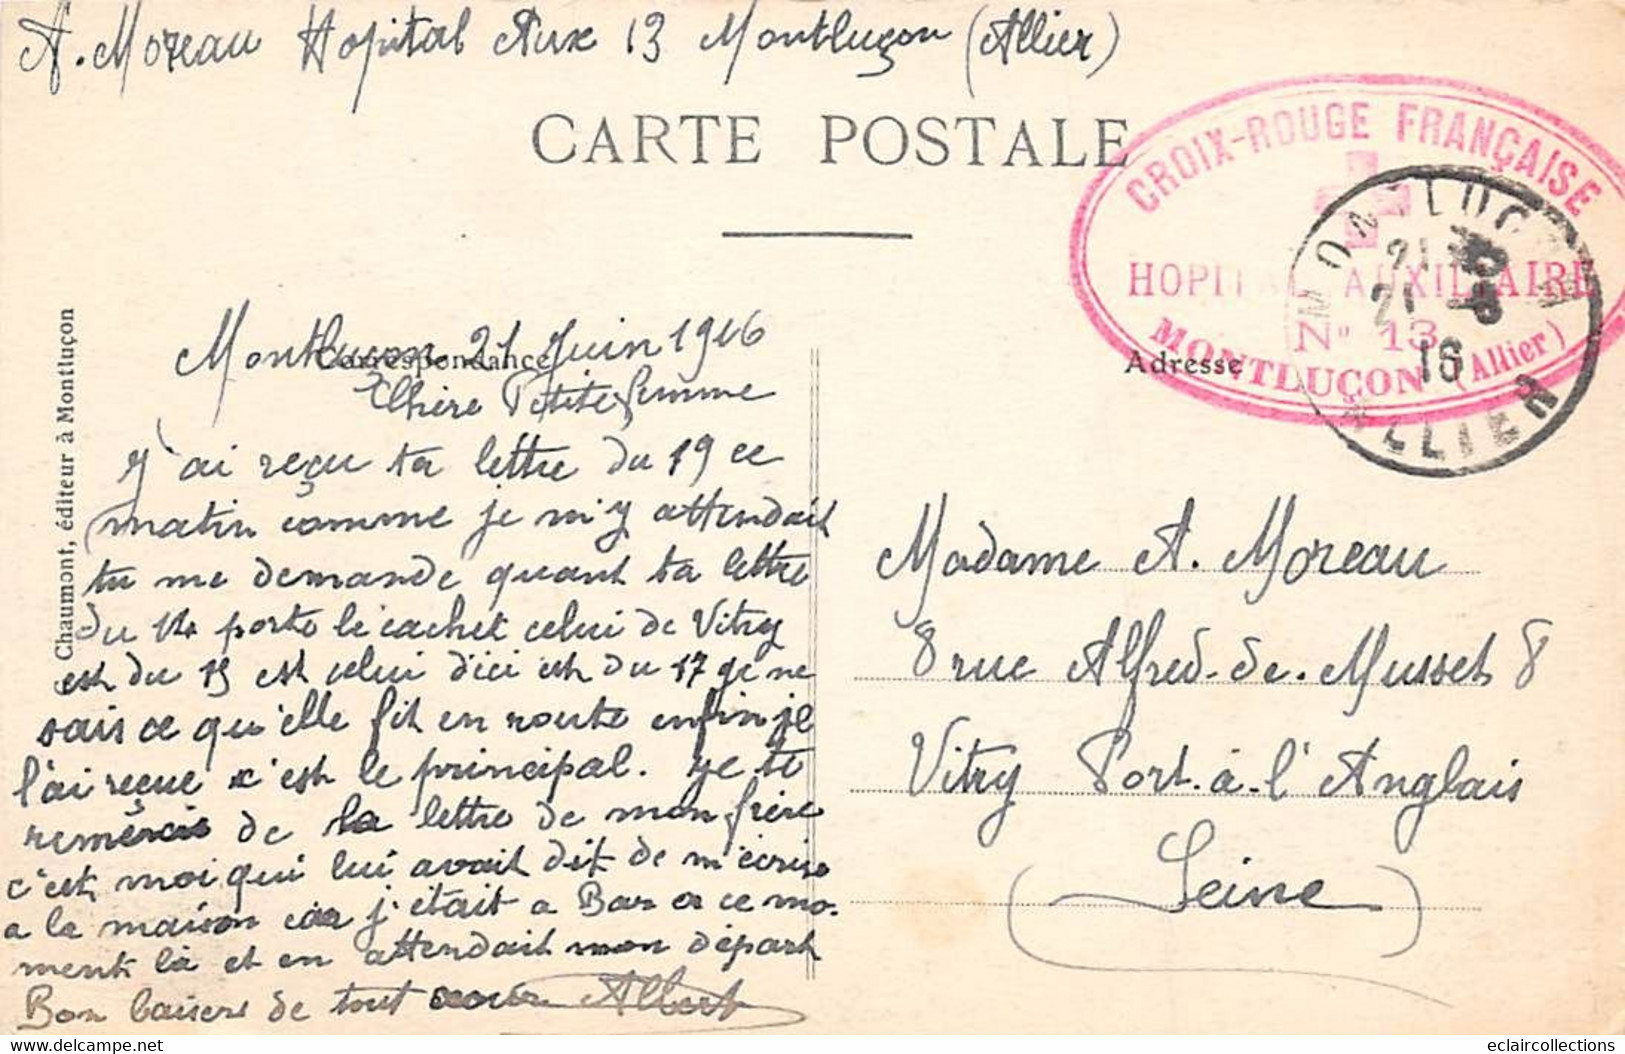 A. Moreau Hopital Aux 13 Montluçon (Allier)
CARTE POSTALE
CROIX-ROUGE FRANÇAISE
HOPITAL AUXILIAIRE
N° 13
MONTLUÇON (Allier)
MONTLUÇON
21
21
16
ALLIER
Chaumont, éditeur à Montluçon
Correspondance
Adresse
Montluçon 21 Juin 1916
Chère Petite femme
J'ai reçu ta lettre du 19 ce
matin comme je m'y attendait
tu me demande quant ta lettre
du 14 porte le cachet celui de Vitry
est du 15 et celui d'ici est du 17 je ne
sais ce qu'elle fit en route enfin je
l'ai reçue c'est le principal. je te
remercie de la lettre de mon frère
c'est moi qui lui avait dit de m'écrire
a la maison car j'était a Bar a ce mo-
ment là et en attendait mon départ
Bon baisers de tout coeur Albert
Madame A. Moreau
8 rue Alfred-de-Musset 8
Vitry Port-à-l'Anglais
(Seine)
eclaircollections
delcampe.net